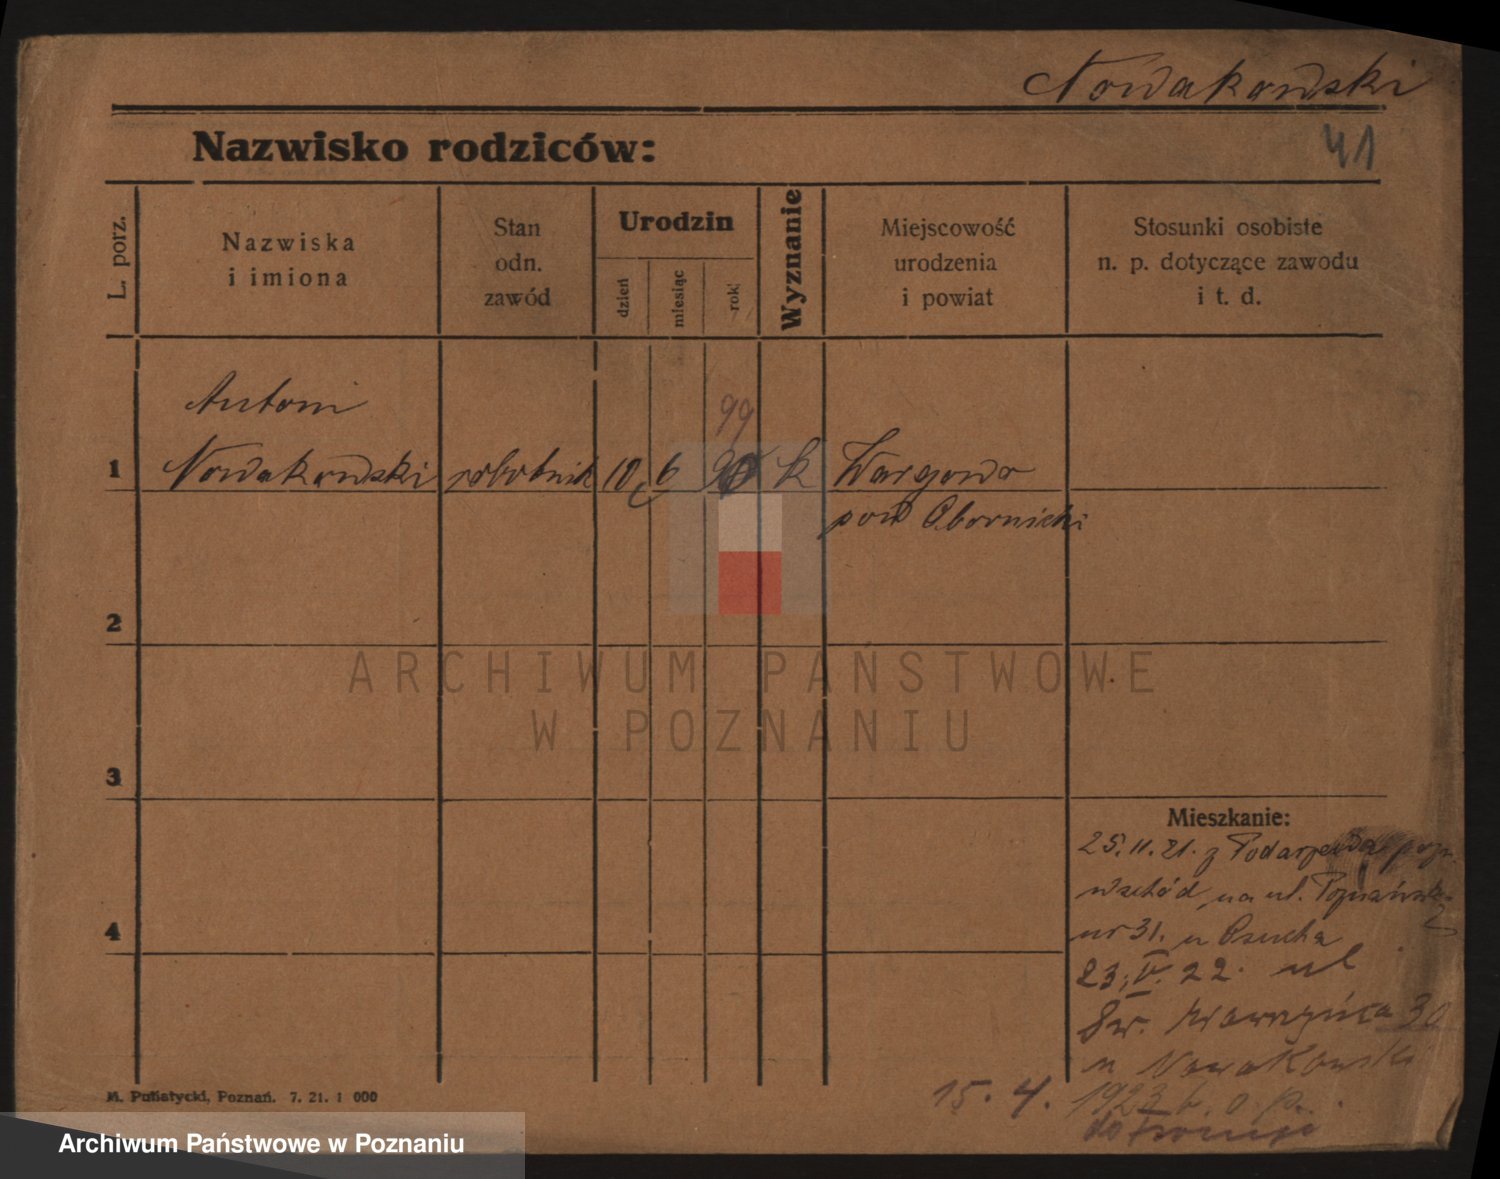 Nowakowski
41
Nazwisko rodziców:
L. porz.
Nazwiska
i imiona
Stan
odn.
zawód
Urodzin
dzień
miesiąc
rok
Wyznanie
Miejscowość
urodzenia
i powiat
Stosunki osobiste
n. p. dotyczące zawodu
i t. d.
Antoni
99
1 Nowakowski robotnik 10 6 k Wargowo
pow Obornicki
2
3
4
ARCHIWUM PAŃSTWOWE
W POZNANIU
Mieszkanie:
25.11.21. z
wschód na ul. Poznańska
nr 31. u
23. V. 22. ul
Św. Wawrzyńca 30
u Nowakowski
15. 4. 1923
do Francji
M. Putiatycki, Poznań. 7. 21. 1 000
Archiwum Państwowe w Poznaniu